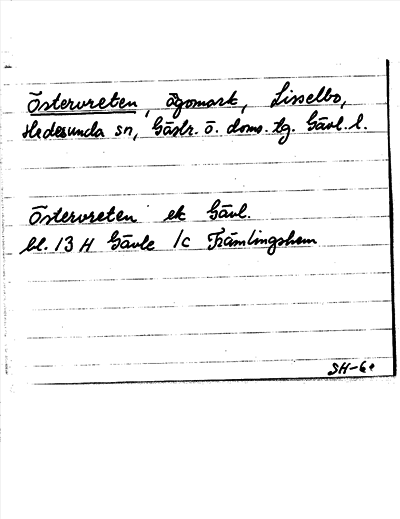 Östervreten, ägomark, Lisselbo,
Hedesunda sn, Gästr. ö. doms. tg. Gävl. l.
Östervreten ek Gävl.
bl. 13 H Gävle 1c Främlingshem
SH-6